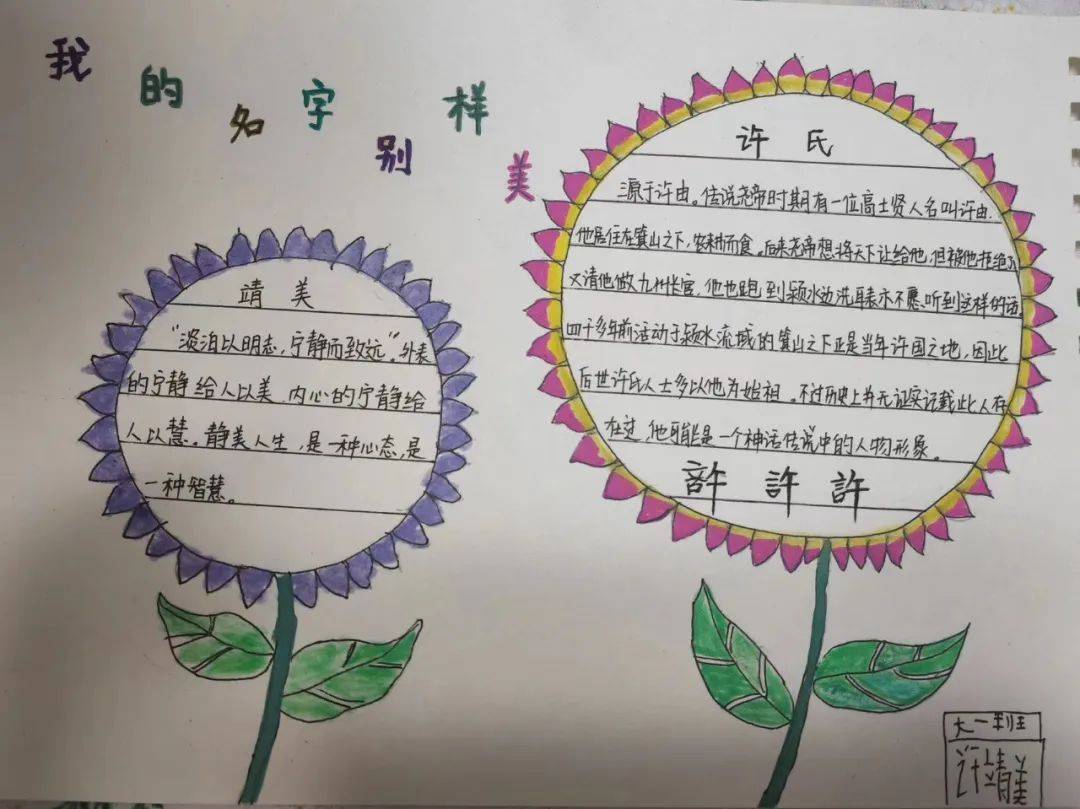 我的名字别样美
靖美
“淡泊以明志，宁静而致远”，外表
的宁静给人以美，内心的宁静给
人以慧。静美人生，是一种心态，是
一种智慧。
许氏
源于许由。传说尧帝时期有一位高士贤人名叫许由，
他居住在箕山之下，农耕而食。后来尧帝想将天下让给他，但被他拒绝了
又请他做九州长官，他也跑到颍水边洗耳表示不愿听到这样的话。
四千多年前活动于颍水流域的箕山之下正是当年许国之地，因此
后世许氏人士多以他为始祖。不过历史上并无证实记载此人存
在过，他可能是一个神话传说中的人物形象。
許許許
大一班
许靖美